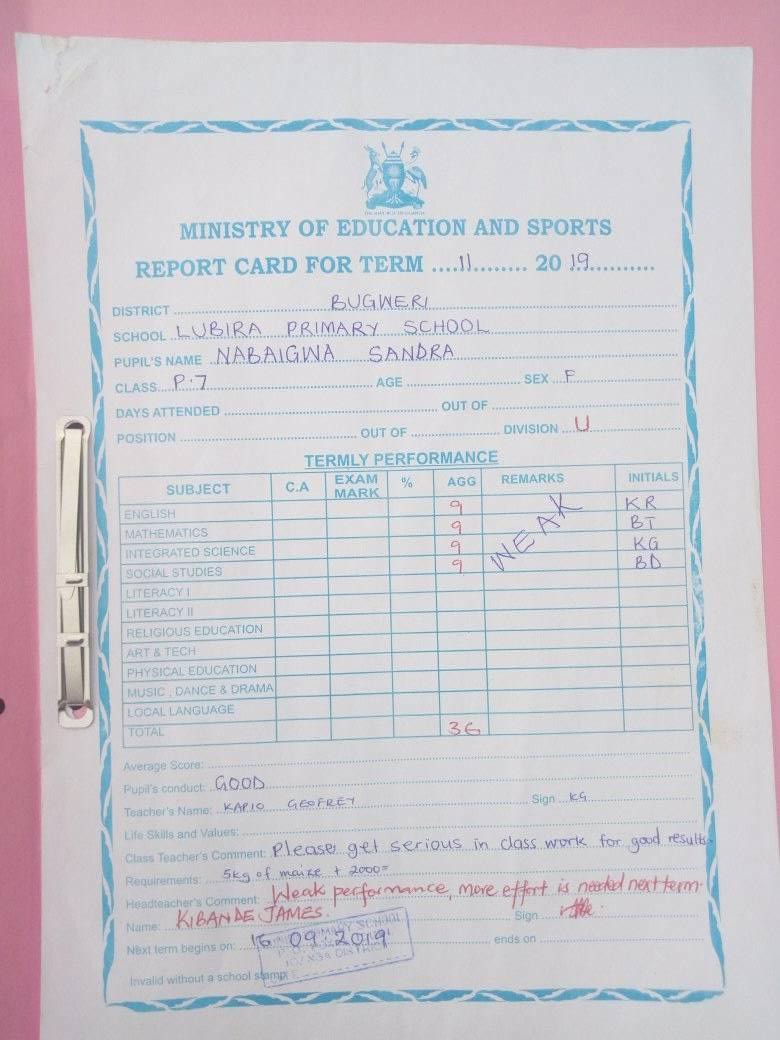 MINISTRY OF EDUCATION AND SPORTS
REPORT CARD FOR TERM ....11........ 20 19...........
DISTRICT BUGWERI
SCHOOL LUBIRA PRIMARY SCHOOL
PUPIL'S NAME NABAIGWA SANDRA
CLASS P.7 AGE SEX F
DAYS ATTENDED OUT OF
POSITION OUT OF DIVISION U
TERMLY PERFORMANCE
SUBJECT C.A EXAM MARK % AGG REMARKS INITIALS
ENGLISH 9 WEAK KR
MATHEMATICS 9 BT
INTEGRATED SCIENCE 9 KG
SOCIAL STUDIES 9 BD
LITERACY I
LITERACY II
RELIGIOUS EDUCATION
ART & TECH
PHYSICAL EDUCATION
MUSIC , DANCE & DRAMA
LOCAL LANGUAGE
TOTAL 36
Average Score:
Pupil's conduct: GOOD
Teacher's Name: KAPIO GEOFREY Sign KG
Life Skills and Values:
Class Teacher's Comment: Please get serious in class work for good results.
Requirements: 5kg of maize + 2000=
Headteacher's Comment: Weak performance, more effort is needed next term.
Name: KIBANDE JAMES. Sign
Next term begins on: 16 09 2019 ends on
Invalid without a school stamp